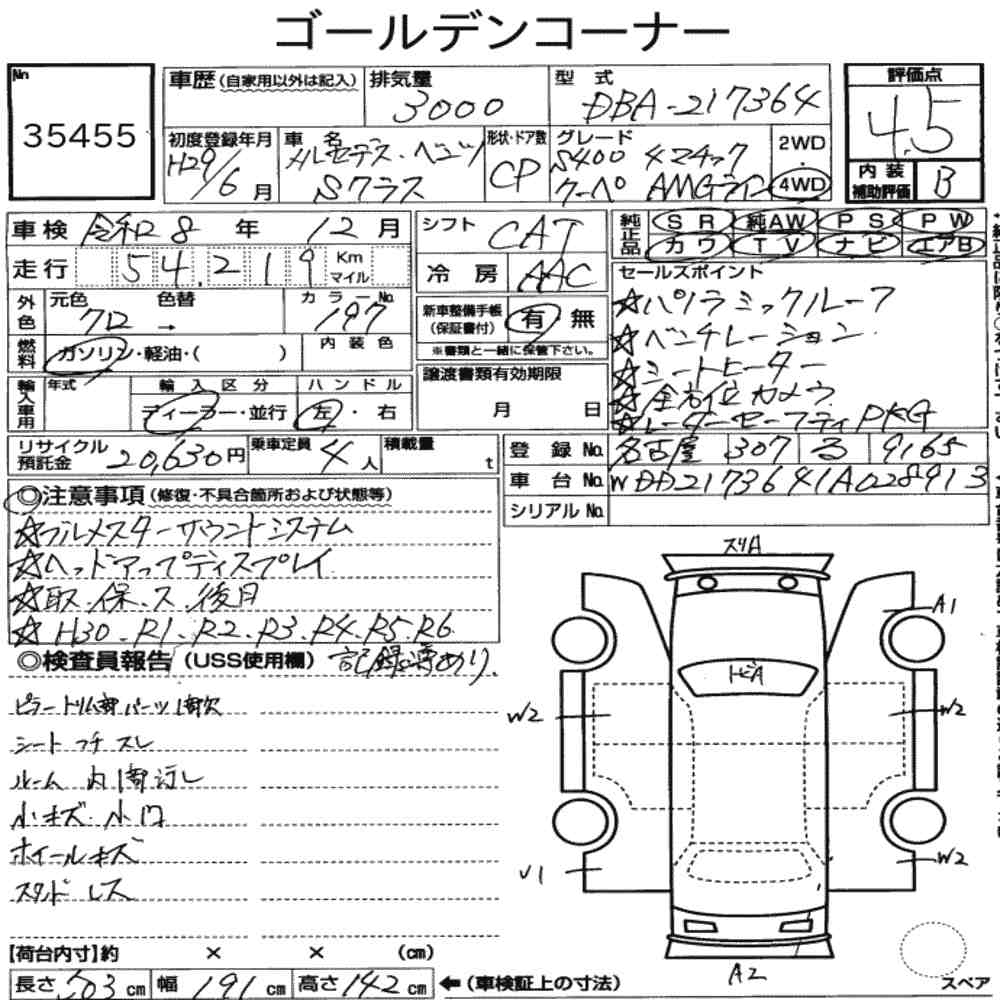 ゴールデンコーナー
No
35455
車歴(自家用以外は記入)
排気量 3000
型式 DBA-217364
評価点 4.5
初度登録年月 H29/6月
車名 メルセデス・ベンツ Sクラス
形状・ドア数 CP
グレード S400 4マチック クーペ AMGライン
2WD・4WD
内装補助評価 B
車検 令和8年 12月
シフト CAT
純正品 SR 純AW PS PW
カワ TV ナビ エアB
走行 54,219 Km マイル
冷房 AAC
セールスポイント
☆パノラミックルーフ
☆ベンチレーション
☆シートヒーター
☆全方位カメラ
☆レーダーセーフティPKG
外色 元色 クロ → 色替 カラーNo. 197
新車整備手帳(保証書付) 有 無
※書類と一緒に保管下さい。
燃料 ガソリン・軽油・( )
内装色
輸入車用 年式 輸入区分 ディーラー・並行 ハンドル 左・右
譲渡書類有効期限 月 日
リサイクル預託金 20,630円
乗車定員 4人
積載量 t
登録No. 名古屋 307 る 9165
車台No. WDD2173641A028913
シリアルNo.
◎注意事項(修復・不具合箇所および状態等)
☆ブルメスターサウンドシステム
☆ヘッドアップディスプレイ
☆取.保.ス.後日
☆H30.R1.R2.R3.R4.R5.R6
記録簿あり.
◎検査員報告(USS使用欄)
ピラートリム部パーツ欠
シートフチスレ
ルーム内
小キズ.小凹
ホイールキズ
スタンドレス
スリA
A1
トビA
W2
W2
V1
W2
A2
【荷台内寸】約 × × (cm)
長さ503cm 幅191cm 高さ142cm ←(車検証上の寸法)
スペア